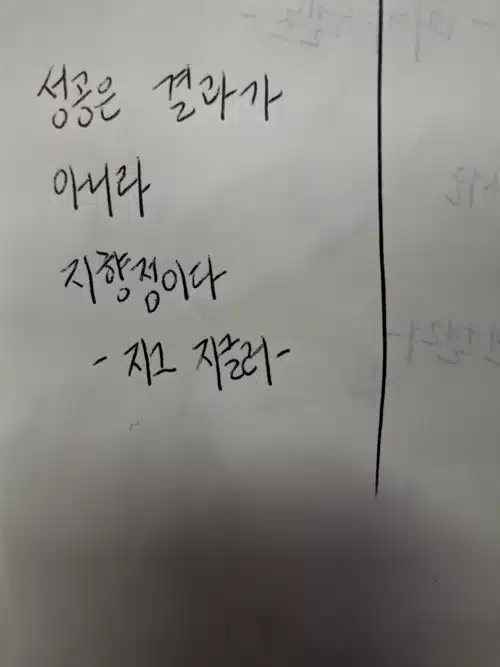 성공은 결과가
아니라
지향점이다
- 지그 지글러-